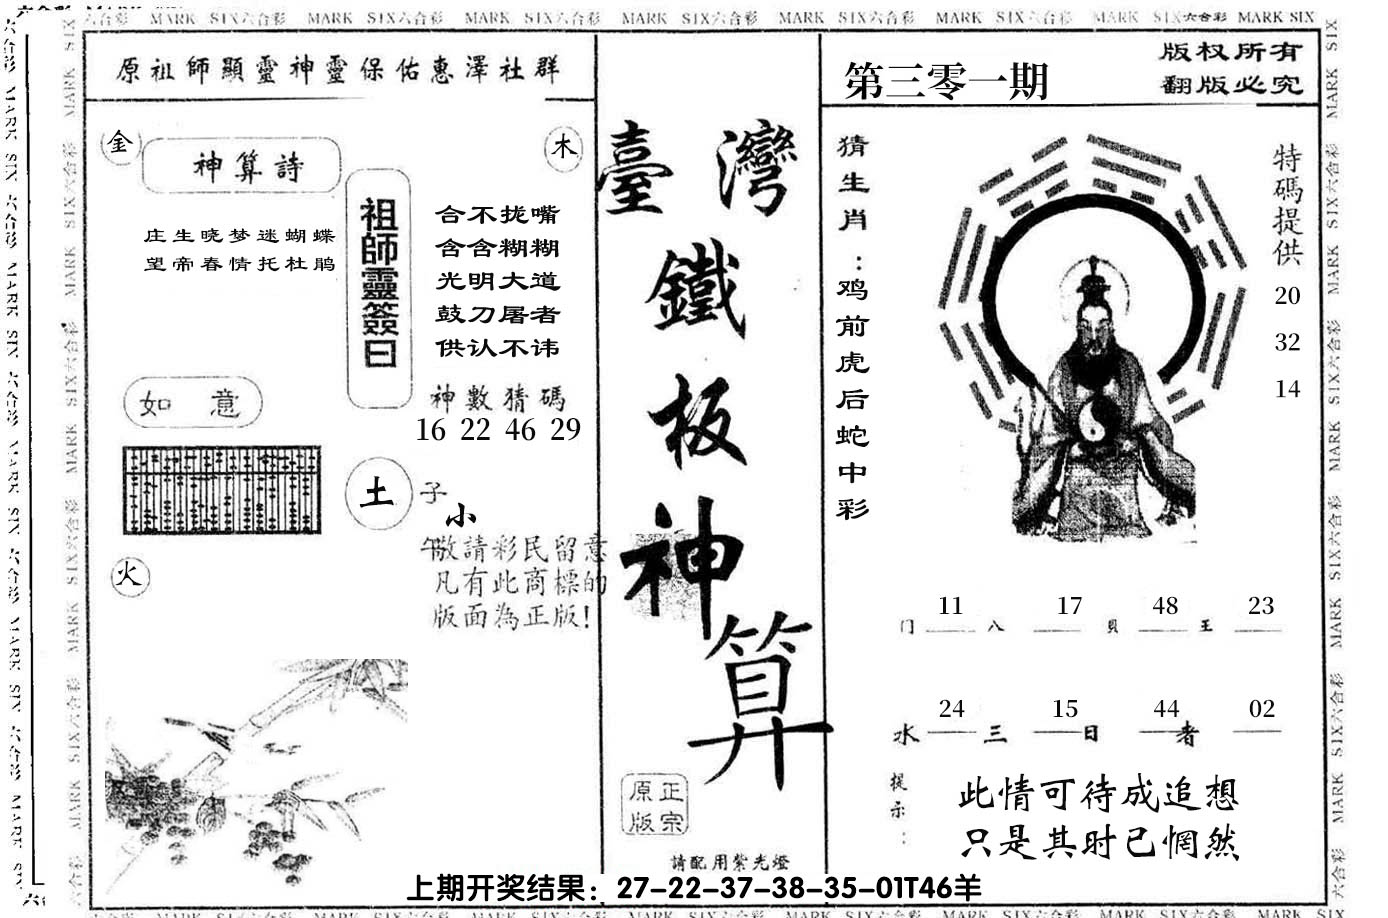 MARK SIX六合彩 MARK SIX六合彩 MARK SIX六合彩 MARK SIX六合彩 MARK SIX六合彩 MARK SIX六合彩 MARK SIX六合彩 MARK SIX
原祖師顯靈神靈保佑惠澤社群
金
木
神算詩
庄生晓梦迷蝴蝶
望帝春情托杜鹃
祖師靈簽曰
合不拢嘴
含含糊糊
光明大道
鼓刀屠者
供认不讳
神數猜碼
16 22 46 29
如意
土
子
小
午
敬請彩民留意
凡有此商標的
版面為正版!
火
臺灣
鐵
板
神
算
正宗
原版
請配用紫光燈
第三零一期
版权所有
翻版必究
猜生肖:鸡前虎后蛇中彩
特碼提供
20
32
14
11 17 48 23
门 八 貝 王
24 15 44 02
水 三 日 者
提示:
此情可待成追想
只是其时已惘然
上期开奖结果：27-22-37-38-35-01T46羊